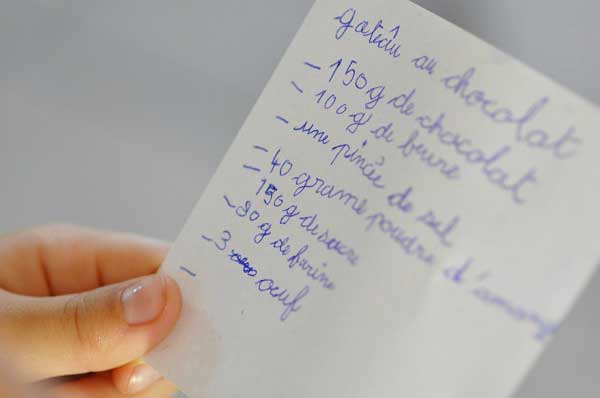 gateâu au chocolat
- 150g de chocolat
- 100g de beure
- une pincée de sel
- 40 grame poudre d'amang
- 150g de sucre
- 90g de farine
- 3 oeuf
-